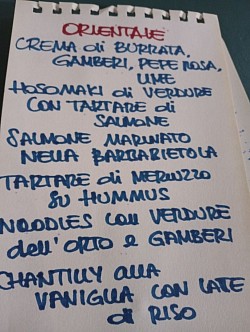 ORIENTALE
CREMA di BURRATA,
GAMBERI, PEPE ROSA,
LIME
HOSOMAKI di VERDURE
CON TARTARE di
SALMONE
SALMONE MARINATO
NELLA BARBABIETOLA
TARTARE di MERLUZZO
SU HUMMUS
NOODLES CON VERDURE
dell'ORTO e GAMBERI
CHANTILLY ALLA
VANIGLIA CON LATE
di RISO